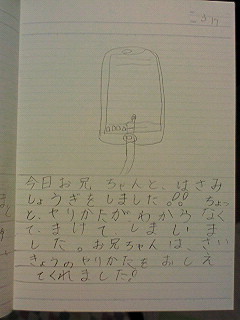 今日お兄ちゃんと、はさみ
しょうぎをしました。!! ちょっ
と、ヤリかたがわからなく
て、まけてしまいま
した。お兄ちゃんは、さい
きょうのヤリかたをおしえ
てくれました!